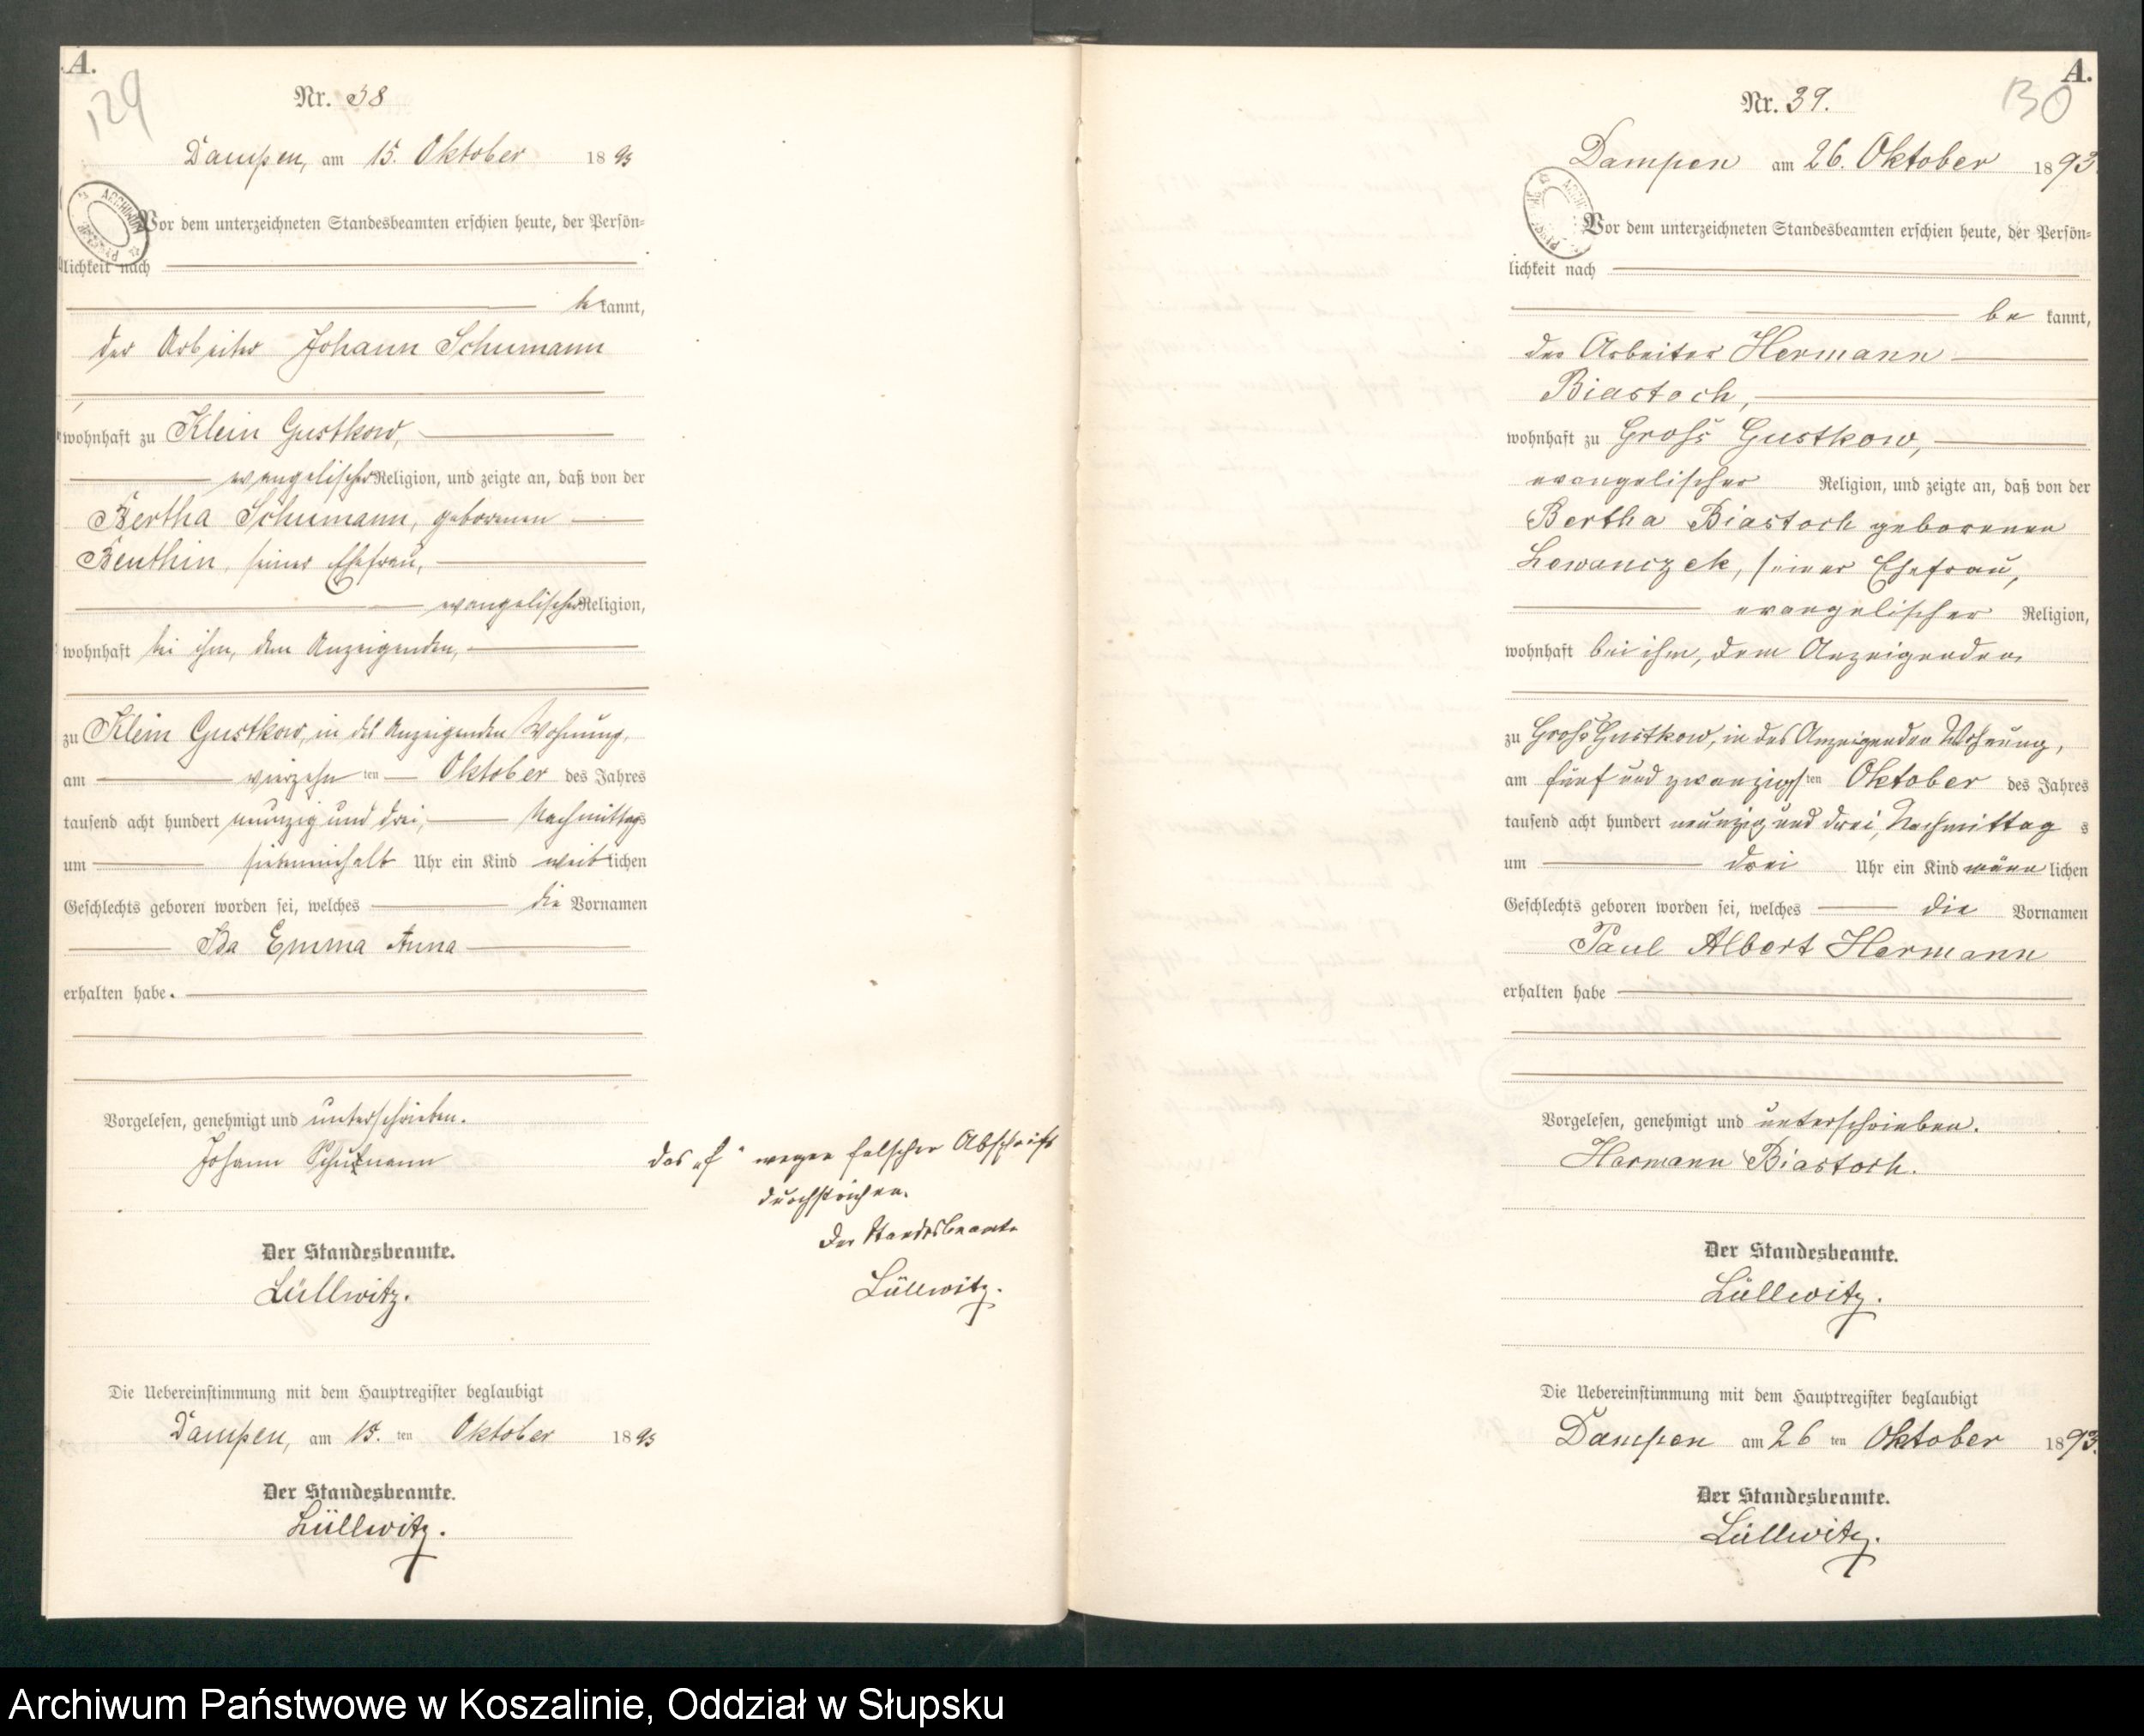 A.
129
Nr. 38
Dampen, am 15. Oktober 1893
Vor dem unterzeichneten Standesbeamten erschien heute, der Persön-
lichkeit nach
bekannt,
der Arbeiter Johann Schumann
wohnhaft zu Klein Gustkow,
evangelischer Religion, und zeigte an, daß von der
Bertha Schumann, geborenen
Benthin, seiner Ehefrau,
evangelischer Religion,
wohnhaft bei ihm, dem Anzeigenden,
zu Klein Gustkow, in des Anzeigenden Wohnung,
am vierzehn ten Oktober des Jahres
tausend acht hundert neunzig und drei, Nachmittags
um siebeneinhalb Uhr ein Kind weiblichen
Geschlechts geboren worden sei, welches die Vornamen
Ida Emma Anna
erhalten habe.
Vorgelesen, genehmigt und unterschrieben.
Johann Schufmann
das „f“ wegen falscher Abschrift
durchstrichen.
Der Standesbeamte
Lüllwitz.
Der Standesbeamte.
Lüllwitz.
Die Uebereinstimmung mit dem Hauptregister beglaubigt
Dampen, am 15. ten Oktober 1893
Der Standesbeamte.
Lüllwitz.
A.
130
Nr. 39.
Dampen am 26. Oktober 1893.
Vor dem unterzeichneten Standesbeamten erschien heute, der Persön-
lichkeit nach
be kannt,
der Arbeiter Hermann
Biastoch,
wohnhaft zu Groß Gustkow,
evangelischer Religion, und zeigte an, daß von der
Bertha Biastoch geborenen
Lewanczek, seiner Ehefrau,
evangelischer Religion,
wohnhaft bei ihm, dem Anzeigenden
zu Groß Gustkow, in des Anzeigenden Wohnung,
am fünf und zwanzigsten Oktober des Jahres
tausend acht hundert neunzig und drei, Nachmittag s
um drei Uhr ein Kind männ lichen
Geschlechts geboren worden sei, welches die Vornamen
Paul Albert Hermann
erhalten habe
Vorgelesen, genehmigt und unterschrieben.
Hermann Biastoch.
Der Standesbeamte.
Lüllwitz.
Die Uebereinstimmung mit dem Hauptregister beglaubigt
Dampen am 26 ten Oktober 1893.
Der Standesbeamte.
Lüllwitz.
Archiwum Państwowe w Koszalinie, Oddział w Słupsku